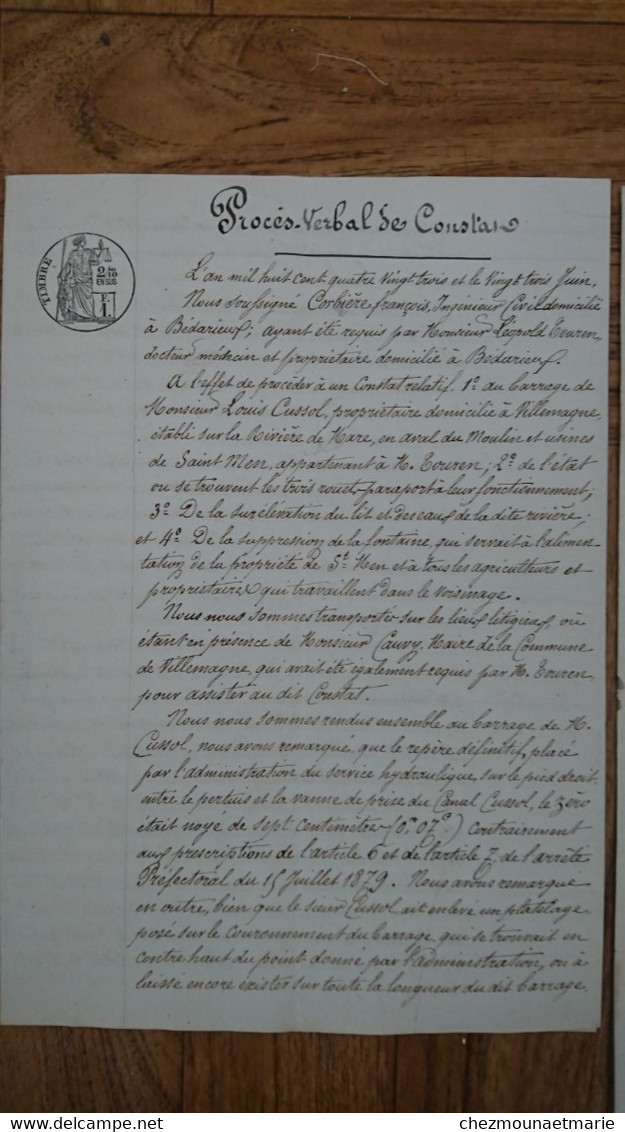 Procés-Verbal de Constat
TIMBRE
2/10
EN SUS
F.
1.
L'an mil huit cent quatre vingt trois et le vingt trois Juin.
Nous soussigné Corbière françois, Ingénieur Civil domicilié
à Bédarieux; ayant été requis par Monsieur Léopold Touren,
docteur médecin et propriétaire domicilié à Bédarieux.
A l'effet de procéder à un Constat relatif 1º du barrage de
Monsieur Louis Cussol, propriétaire domicilié à Villemagne,
établi sur la Rivière de Mare, en aval du Moulin et usines
de Saint Men, appartenant à M. Touren; 2º de l'état
ou se trouvent les trois rouets par aport à leur fonctionnement;
3º De la surélévation du lit et des eaux de la dite rivière;
et 4º De la suppression de la fontaine, qui servait à l'alimen-
tation de la propriété de St. Men et à tous les agriculteurs et
propriétaires qui travaillent dans le voisinage.
Nous nous sommes transporter sur les lieux letigieux, où
étant en présence de Monsieur Cauvy, Maire de la Commune
de Villemagne, qui avait été également requis par M. Touren,
pour assister au dit Constat.
Nous nous sommes rendus ensemble au barrage de M.
Cussol, nous avons remarqué, que le repère définitif, placé
par l'administration du service hydraulique, sur le pied droit
entre le pertuis et la vanne de prise du Canal Cussol, le zéro
était noyé de sept centimètres (0m 07c.) contrairement
aux prescriptions de l'article 6 et de l'article 7, de l'arrêté
Préfectoral du 15 Juillet 1879. Nous avons remarqué
en outre, bien que le sieur Cussol ait enlevé un platelage
posé sur le couronnement du barrage, qui se trouvait en
contre haut du point donné par l'administration, on à
laissé encore exister sur toute la longueur du dit barrage
chezmounaetmarie